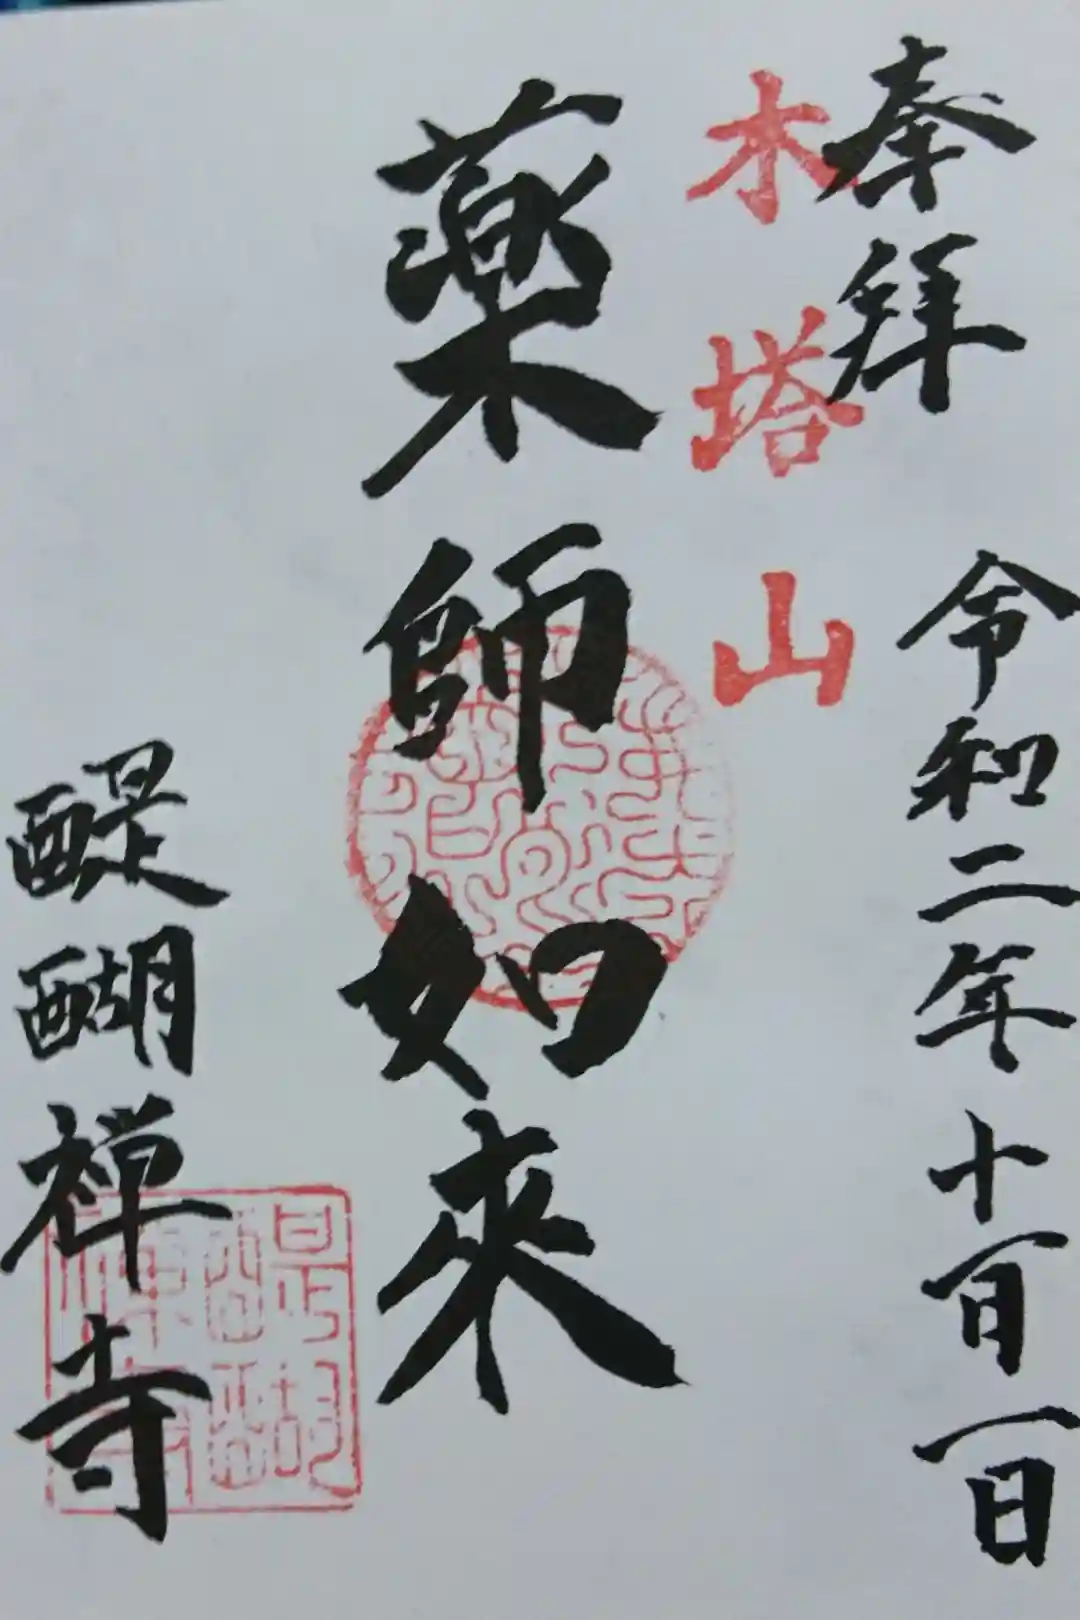 奉拝
令和二年十一月一日
木塔山
薬師如来
醍醐禅寺
醍醐